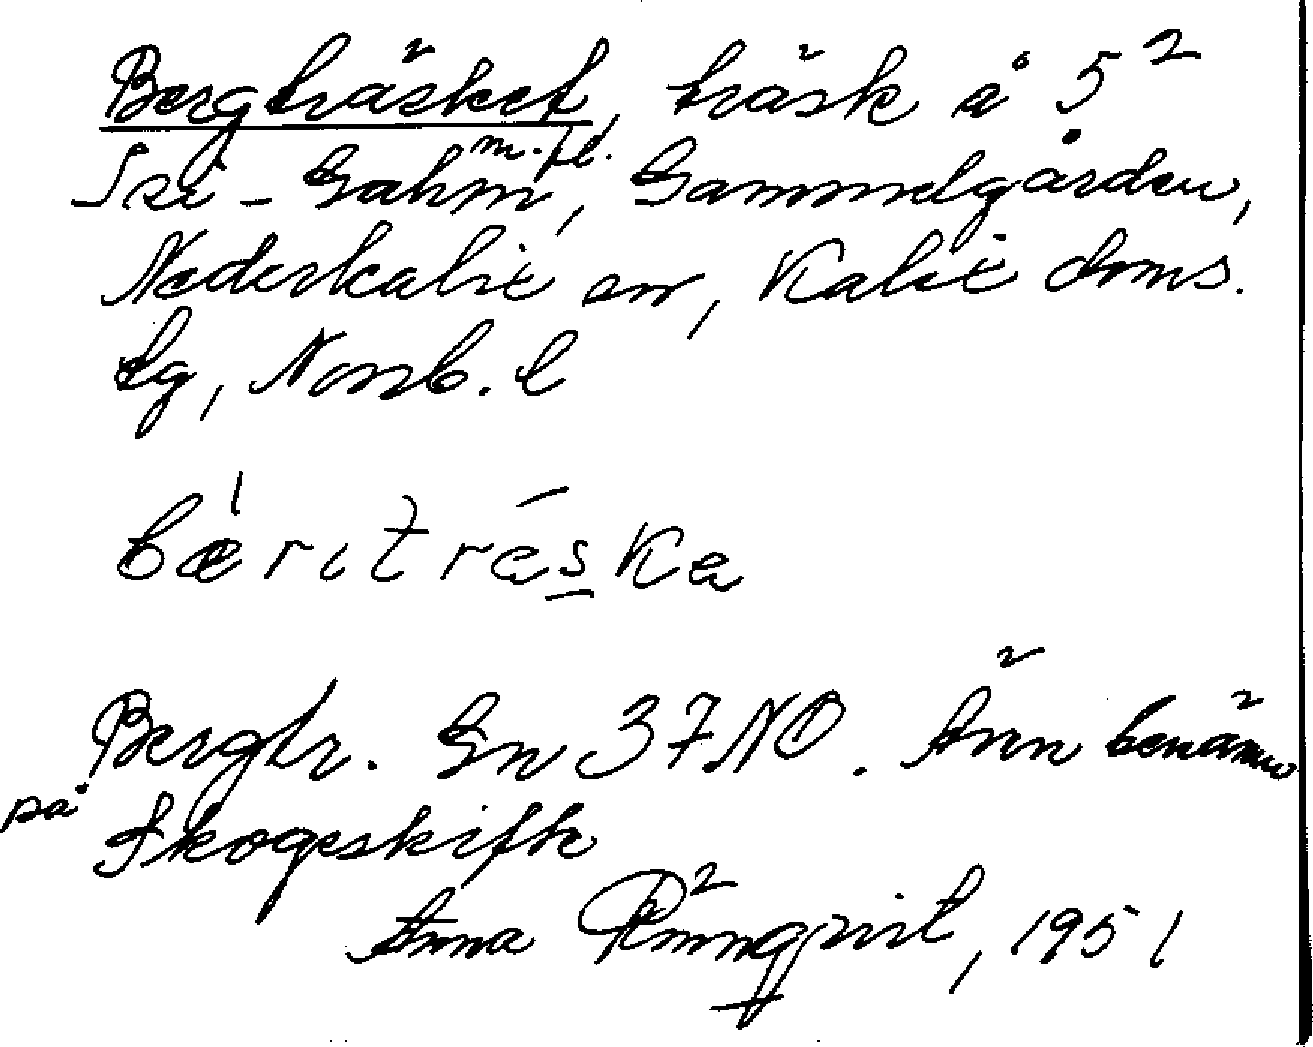 Bergträsket, träsk å 5²
m. fl.
Gammelgården,
Nederkalix sn, Kalix doms.
lg, Norrb. l
bæritræska
Bergtr. Gn 37 NO. Änn benämn
på Skogeskifte
Anna Rönnqvist, 1951